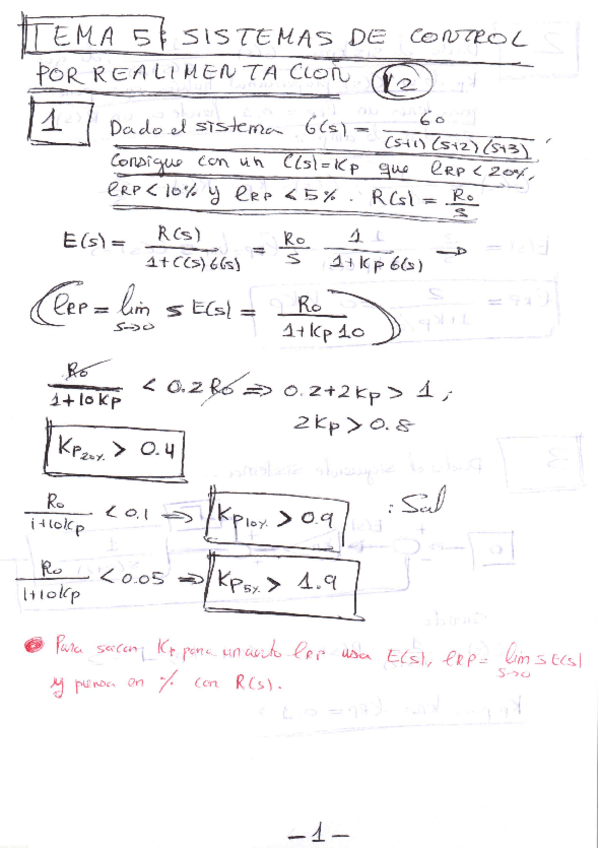 TEMA 5: SISTEMAS DE CONTROL
POR REALIMENTACION 2
1 Dado el sistema G(s) = 60 / (s+1)(s+2)(s+3).
Consigue con un C(s)=Kp que eRP < 20%,
eRP < 10% y eRP < 5%. R(s) = Ro / s
E(s) = R(s) / 1+C(s)G(s) = Ro / s 1 / 1+Kp G(s) →
eRP = lim s→0 s E(s) = Ro / 1+Kp 10
Ro / 1+10Kp < 0.2 Ro ⇒ 0.2+2Kp > 1 ;
2Kp > 0.8
Kp20% > 0.4
Ro / 1+10Kp < 0.1 ⇒ Kp10% > 0.9 : Sol
Ro / 1+10Kp < 0.05 ⇒ Kp5% > 1.9
Para sacar Kp para un cierto eRP usa E(s), eRP = lim s→0 s E(s)
y piensa en % con R(s).
– 1 –